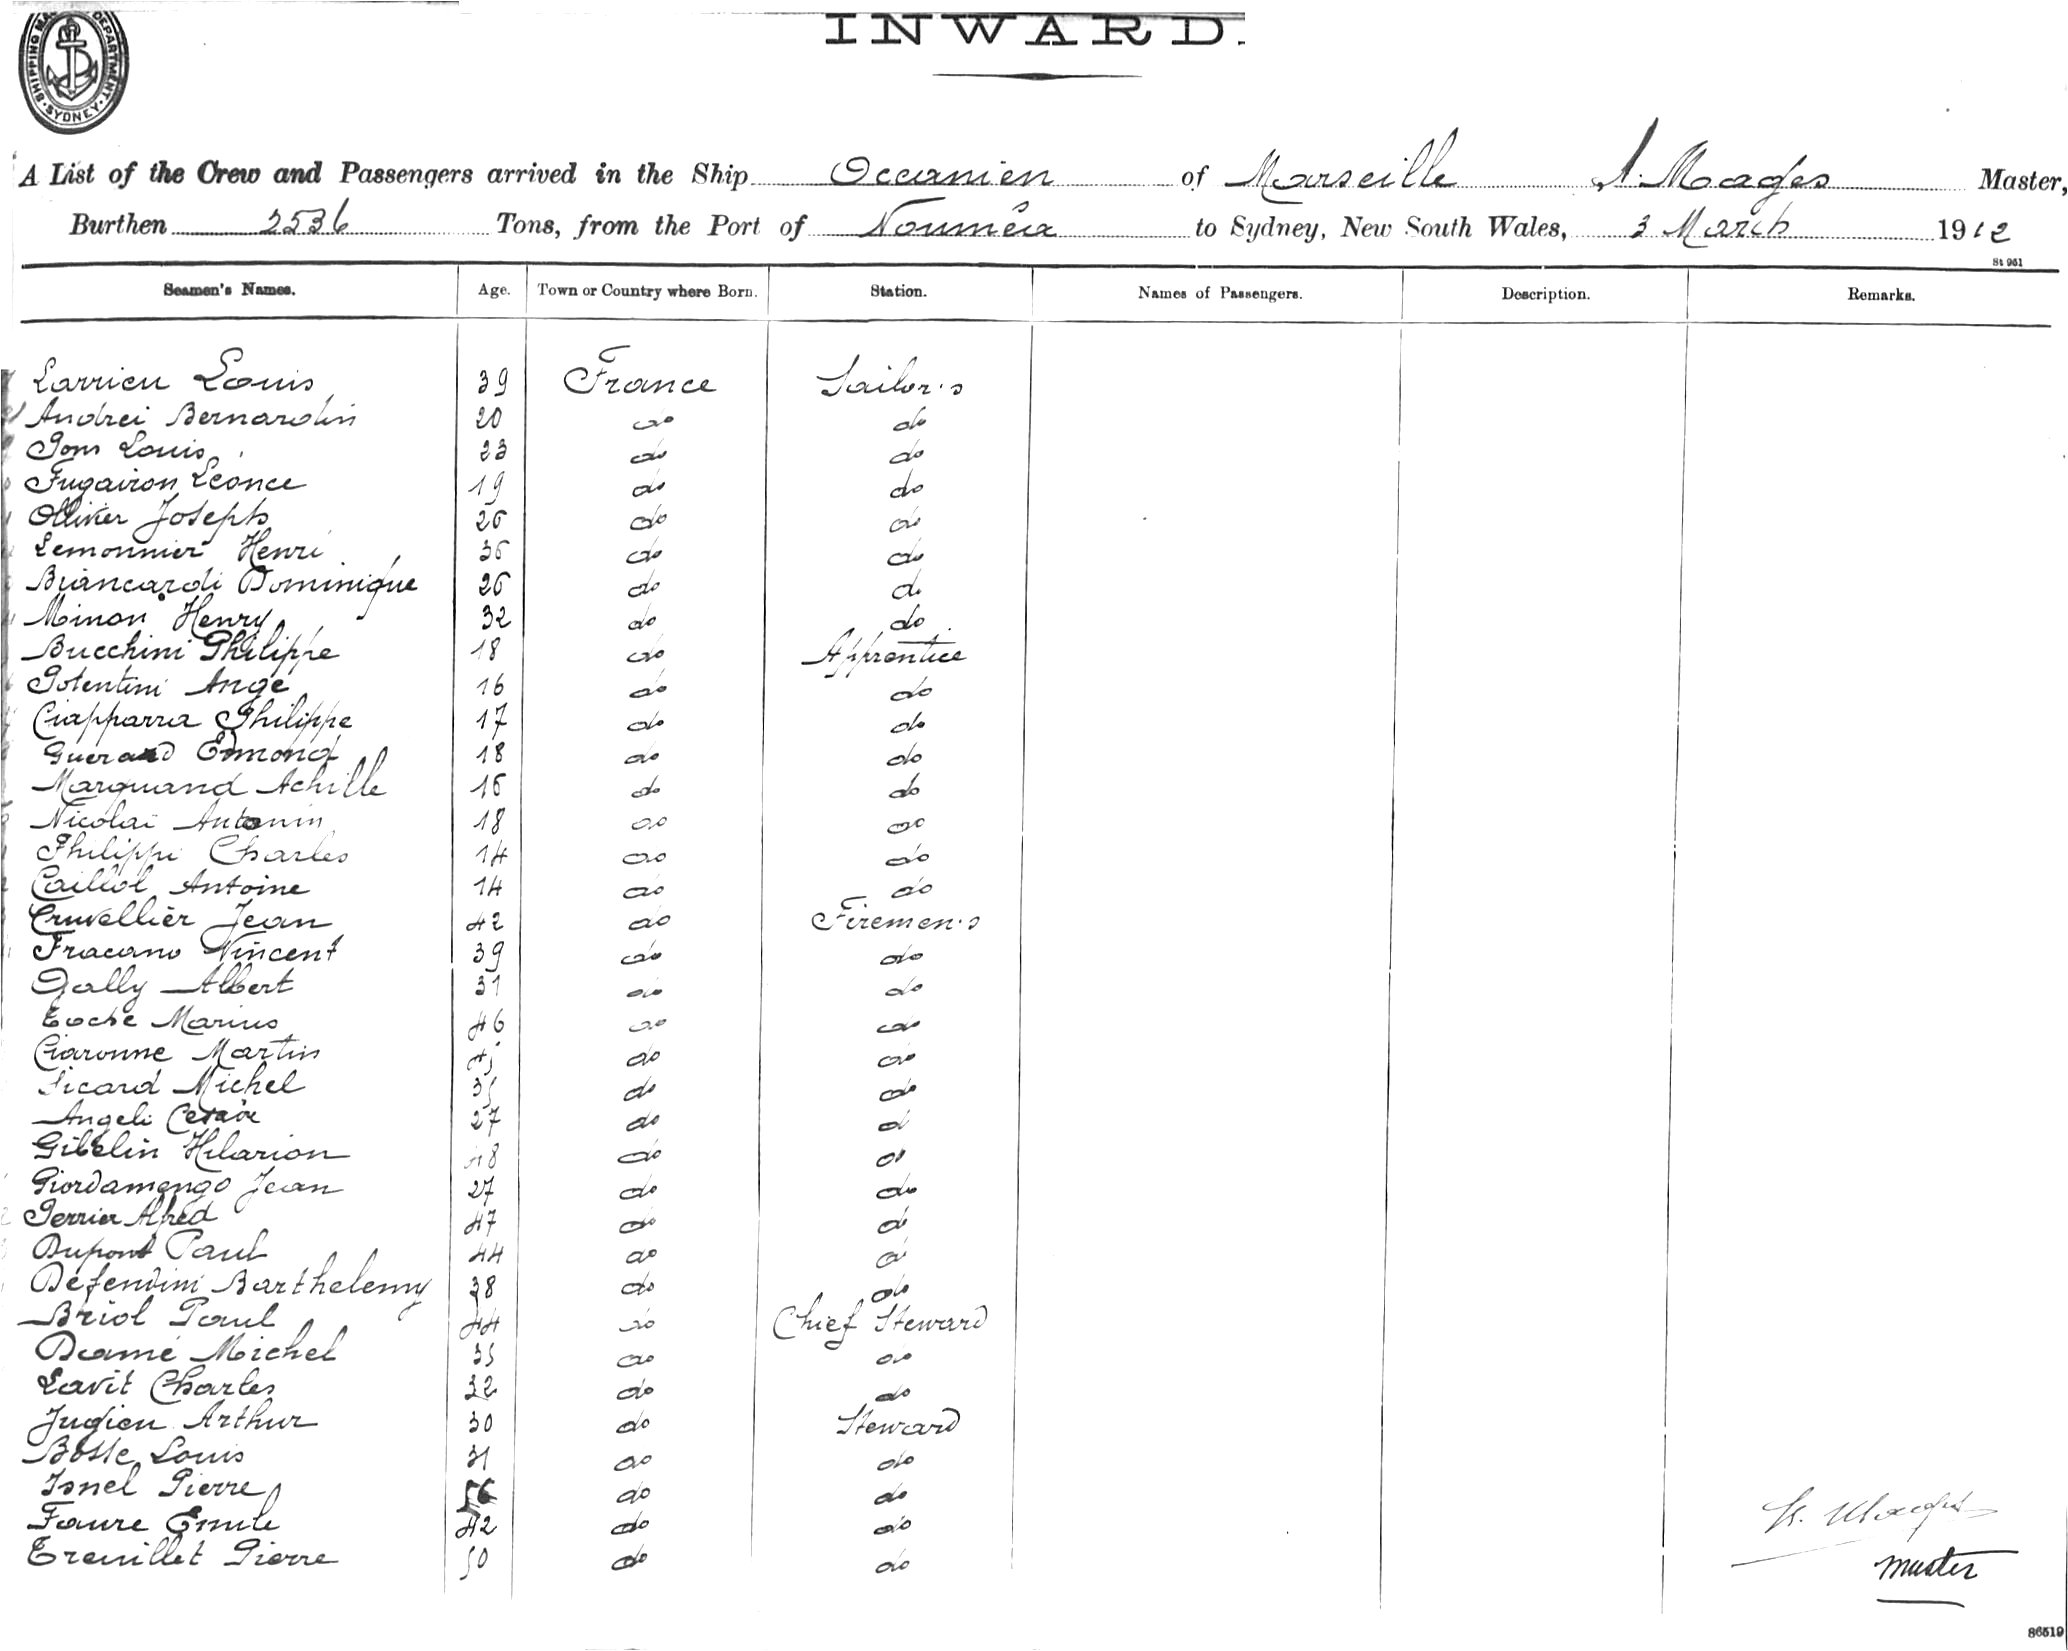 SHIPPING MASTER'S DEPARTMENT. SYDNEY
INWARD.
A List of the Crew and Passengers arrived in the Ship Occanien of Marseille A. Mages Master,
Burthen 2536 Tons, from the Port of Nouméa to Sydney, New South Wales, 3 March 1912
St 961
Seamen's Names. Age. Town or Country where Born. Station. Names of Passengers. Description. Remarks.
Larrieu Louis 39 France Sailor.s
Andrei Bernardin 20 do do
Pons Louis 23 do do
Fugairon Léonce 19 do do
Ollivier Joseph 26 do do
Lemonnier Henri 36 do do
Biancardi Dominique 26 do do
Minon Henry 32 do do
Bucchini Philippe 18 do Apprentice
Potentini Ange 16 do do
Ciapparra Philippe 17 do do
Guerard Edmond 18 do do
Marquand Achille 16 do do
Nicolaï Antonin 18 do do
Philippi Charles 14 do do
Caillol Antoine 14 do do
Cruvellier Jean 42 do Firemen.s
Fracano Vincent 39 do do
Dally Albert 31 do do
Eoche Marius 46 do do
Ciaronne Martin do do
Sicard Michel 35 do do
Angeli Cesaire 27 do do
Gibelin Hilarion 48 do do
Giordamengo Jean 27 do do
Perrier Alfred 47 do do
Dupont Paul 44 do do
Défendini Barthelemy 38 do do
Briol Paul 44 do Chief Steward
Damé Michel 35 do do
Lavit Charles 32 do do
Jugieu Arthur 30 do Steward
Bosse Louis 31 do do
Isnel Pierre 56 do do
Faure Emile 42 do do
Treuillet Pierre 50 do do
A. Mages
Master
86519